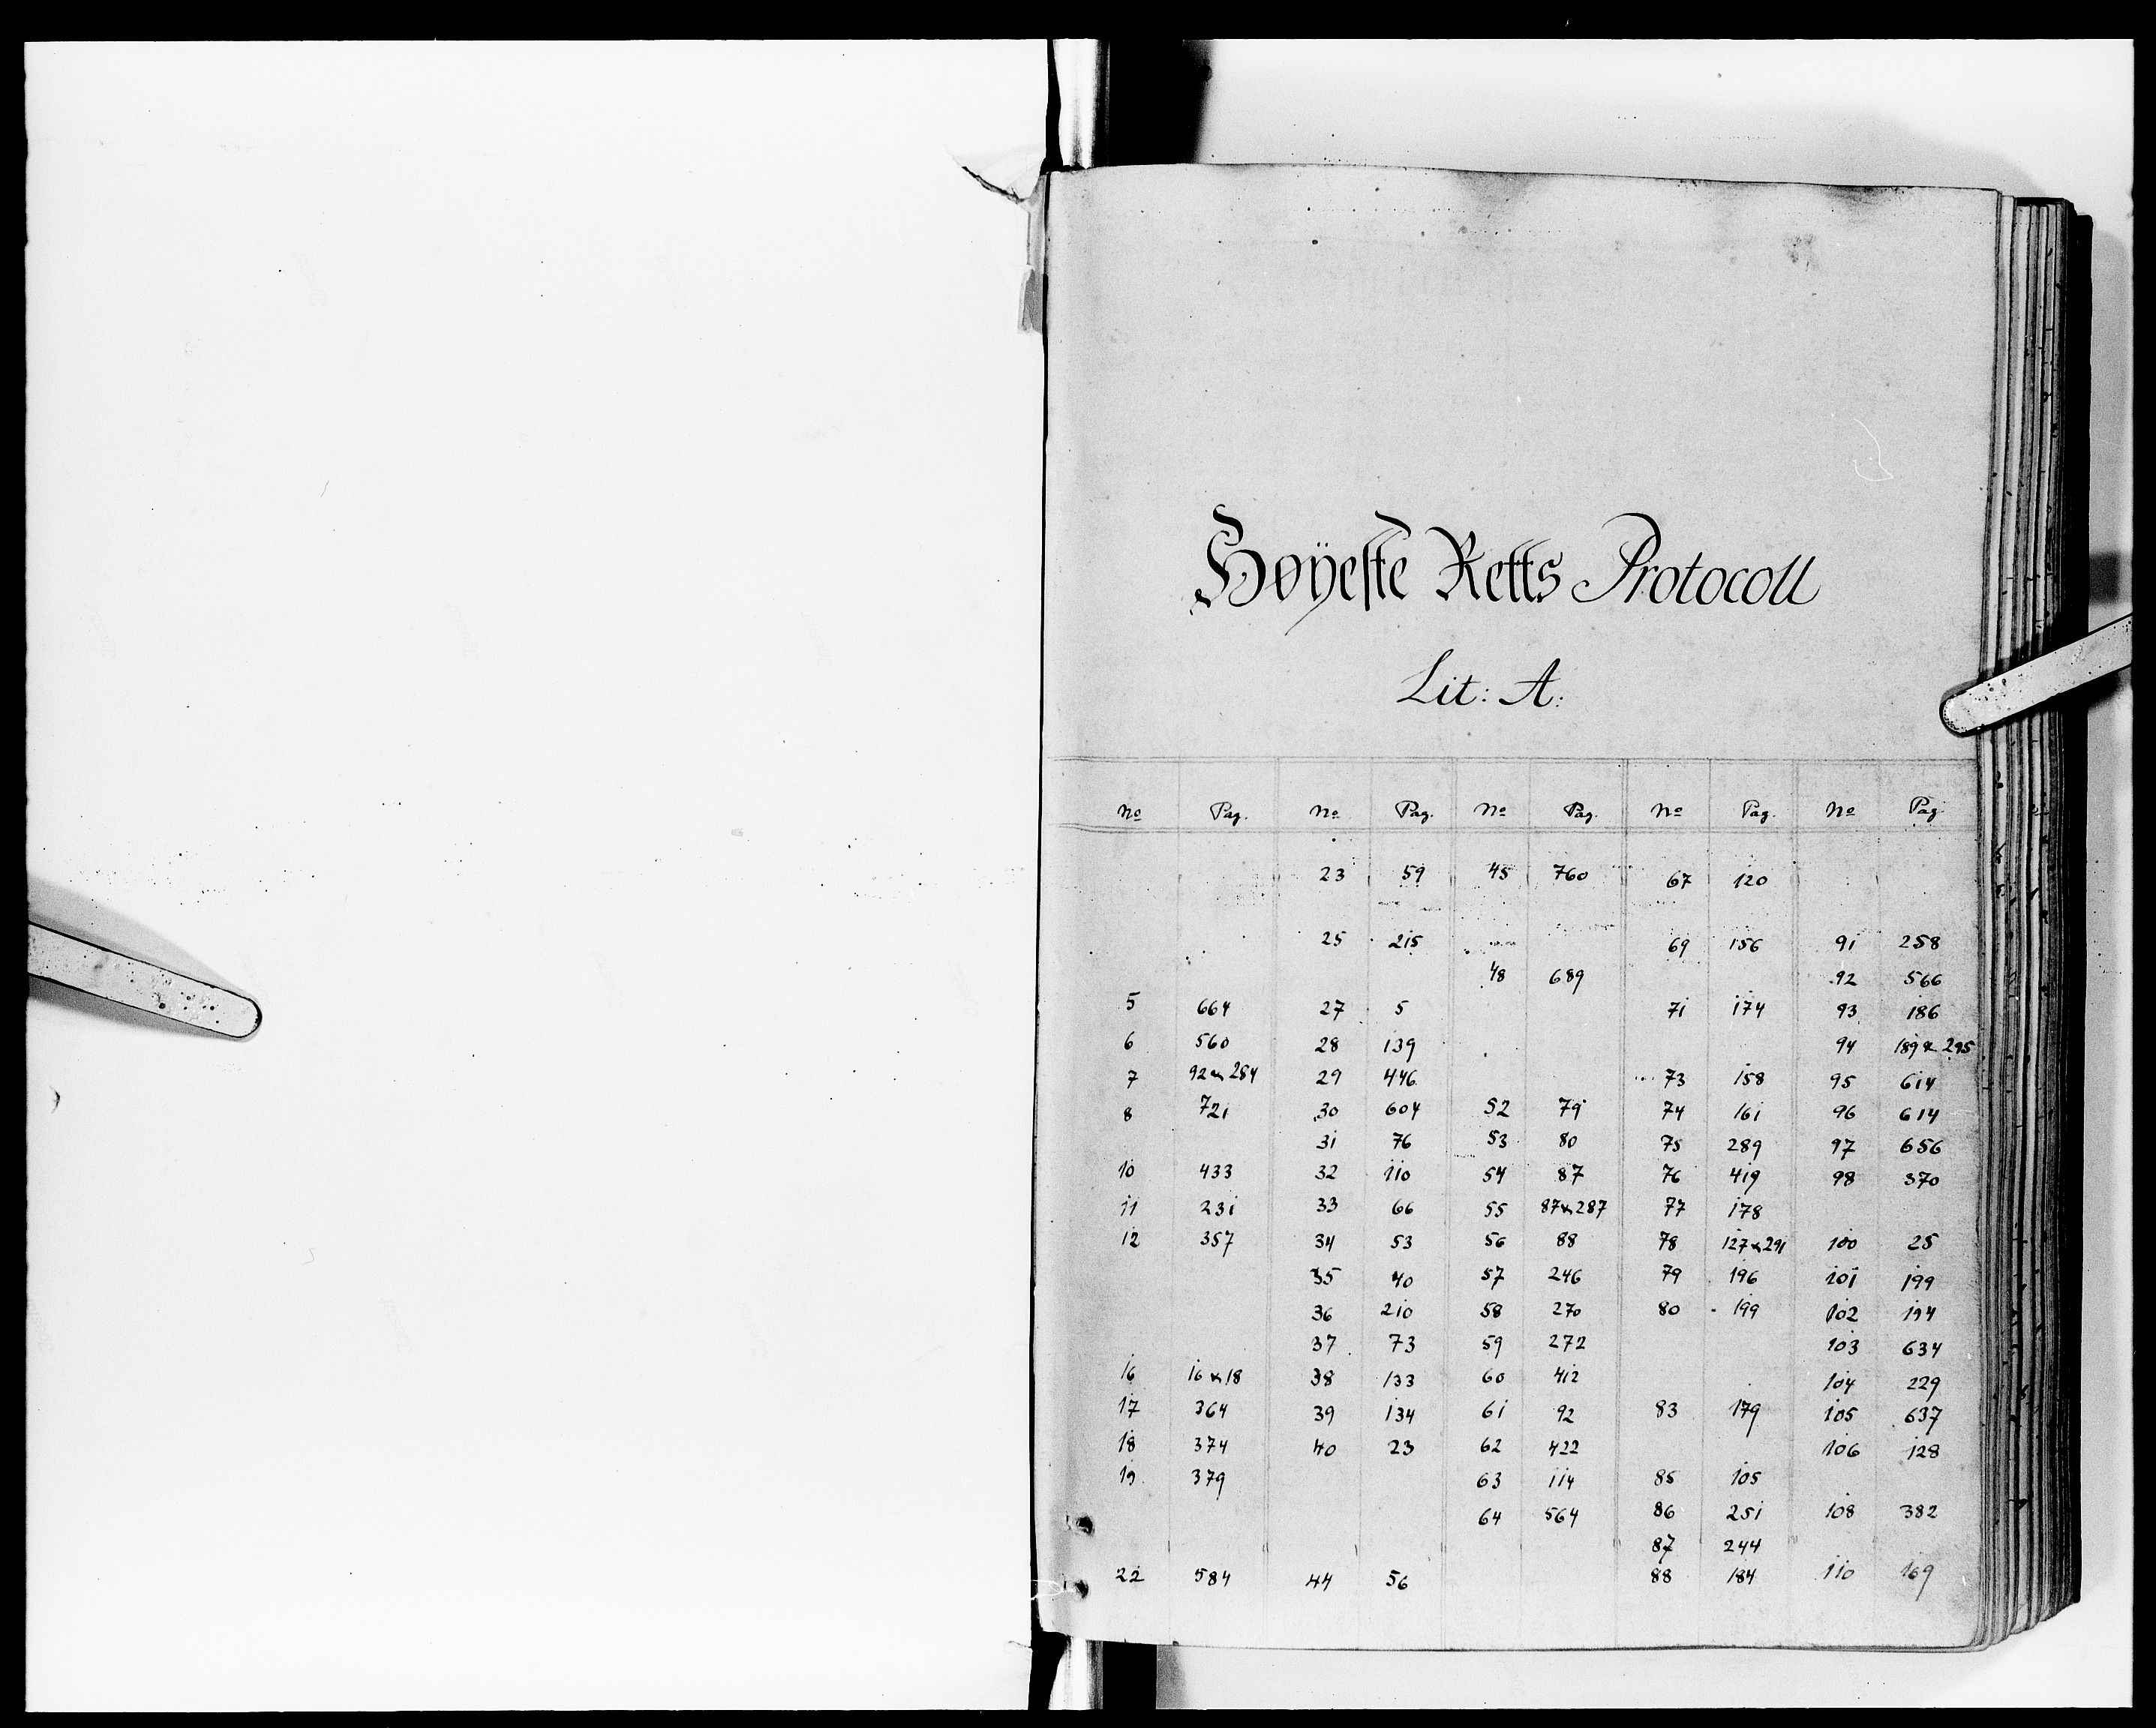 Høÿeste Retts Protocoll
Lit: A:
No Pag. No Pag. No Pag. No Pag. No Pag.
23 59 45 760 67 120
25 215 69 156 91 258
48 689 92 566
5 664 27 5 71 174 93 186
6 560 28 139 94 189 & 295
7 92 & 284 29 446 73 158 95 614
8 721 30 604 52 79 74 161 96 614
31 76 53 80 75 289 97 656
10 433 32 110 54 87 76 419 98 370
11 231 33 66 55 87 & 287 77 178
12 357 34 53 56 88 78 127 & 291 100 25
35 40 57 246 79 196 101 199
36 210 58 270 80 199 102 194
37 73 59 272 103 634
16 16 & 18 38 133 60 412 104 229
17 364 39 134 61 92 83 179 105 637
18 374 40 23 62 422 106 128
19 379 63 114 85 105
64 564 86 251 108 382
87 244
22 584 44 56 88 184 110 169